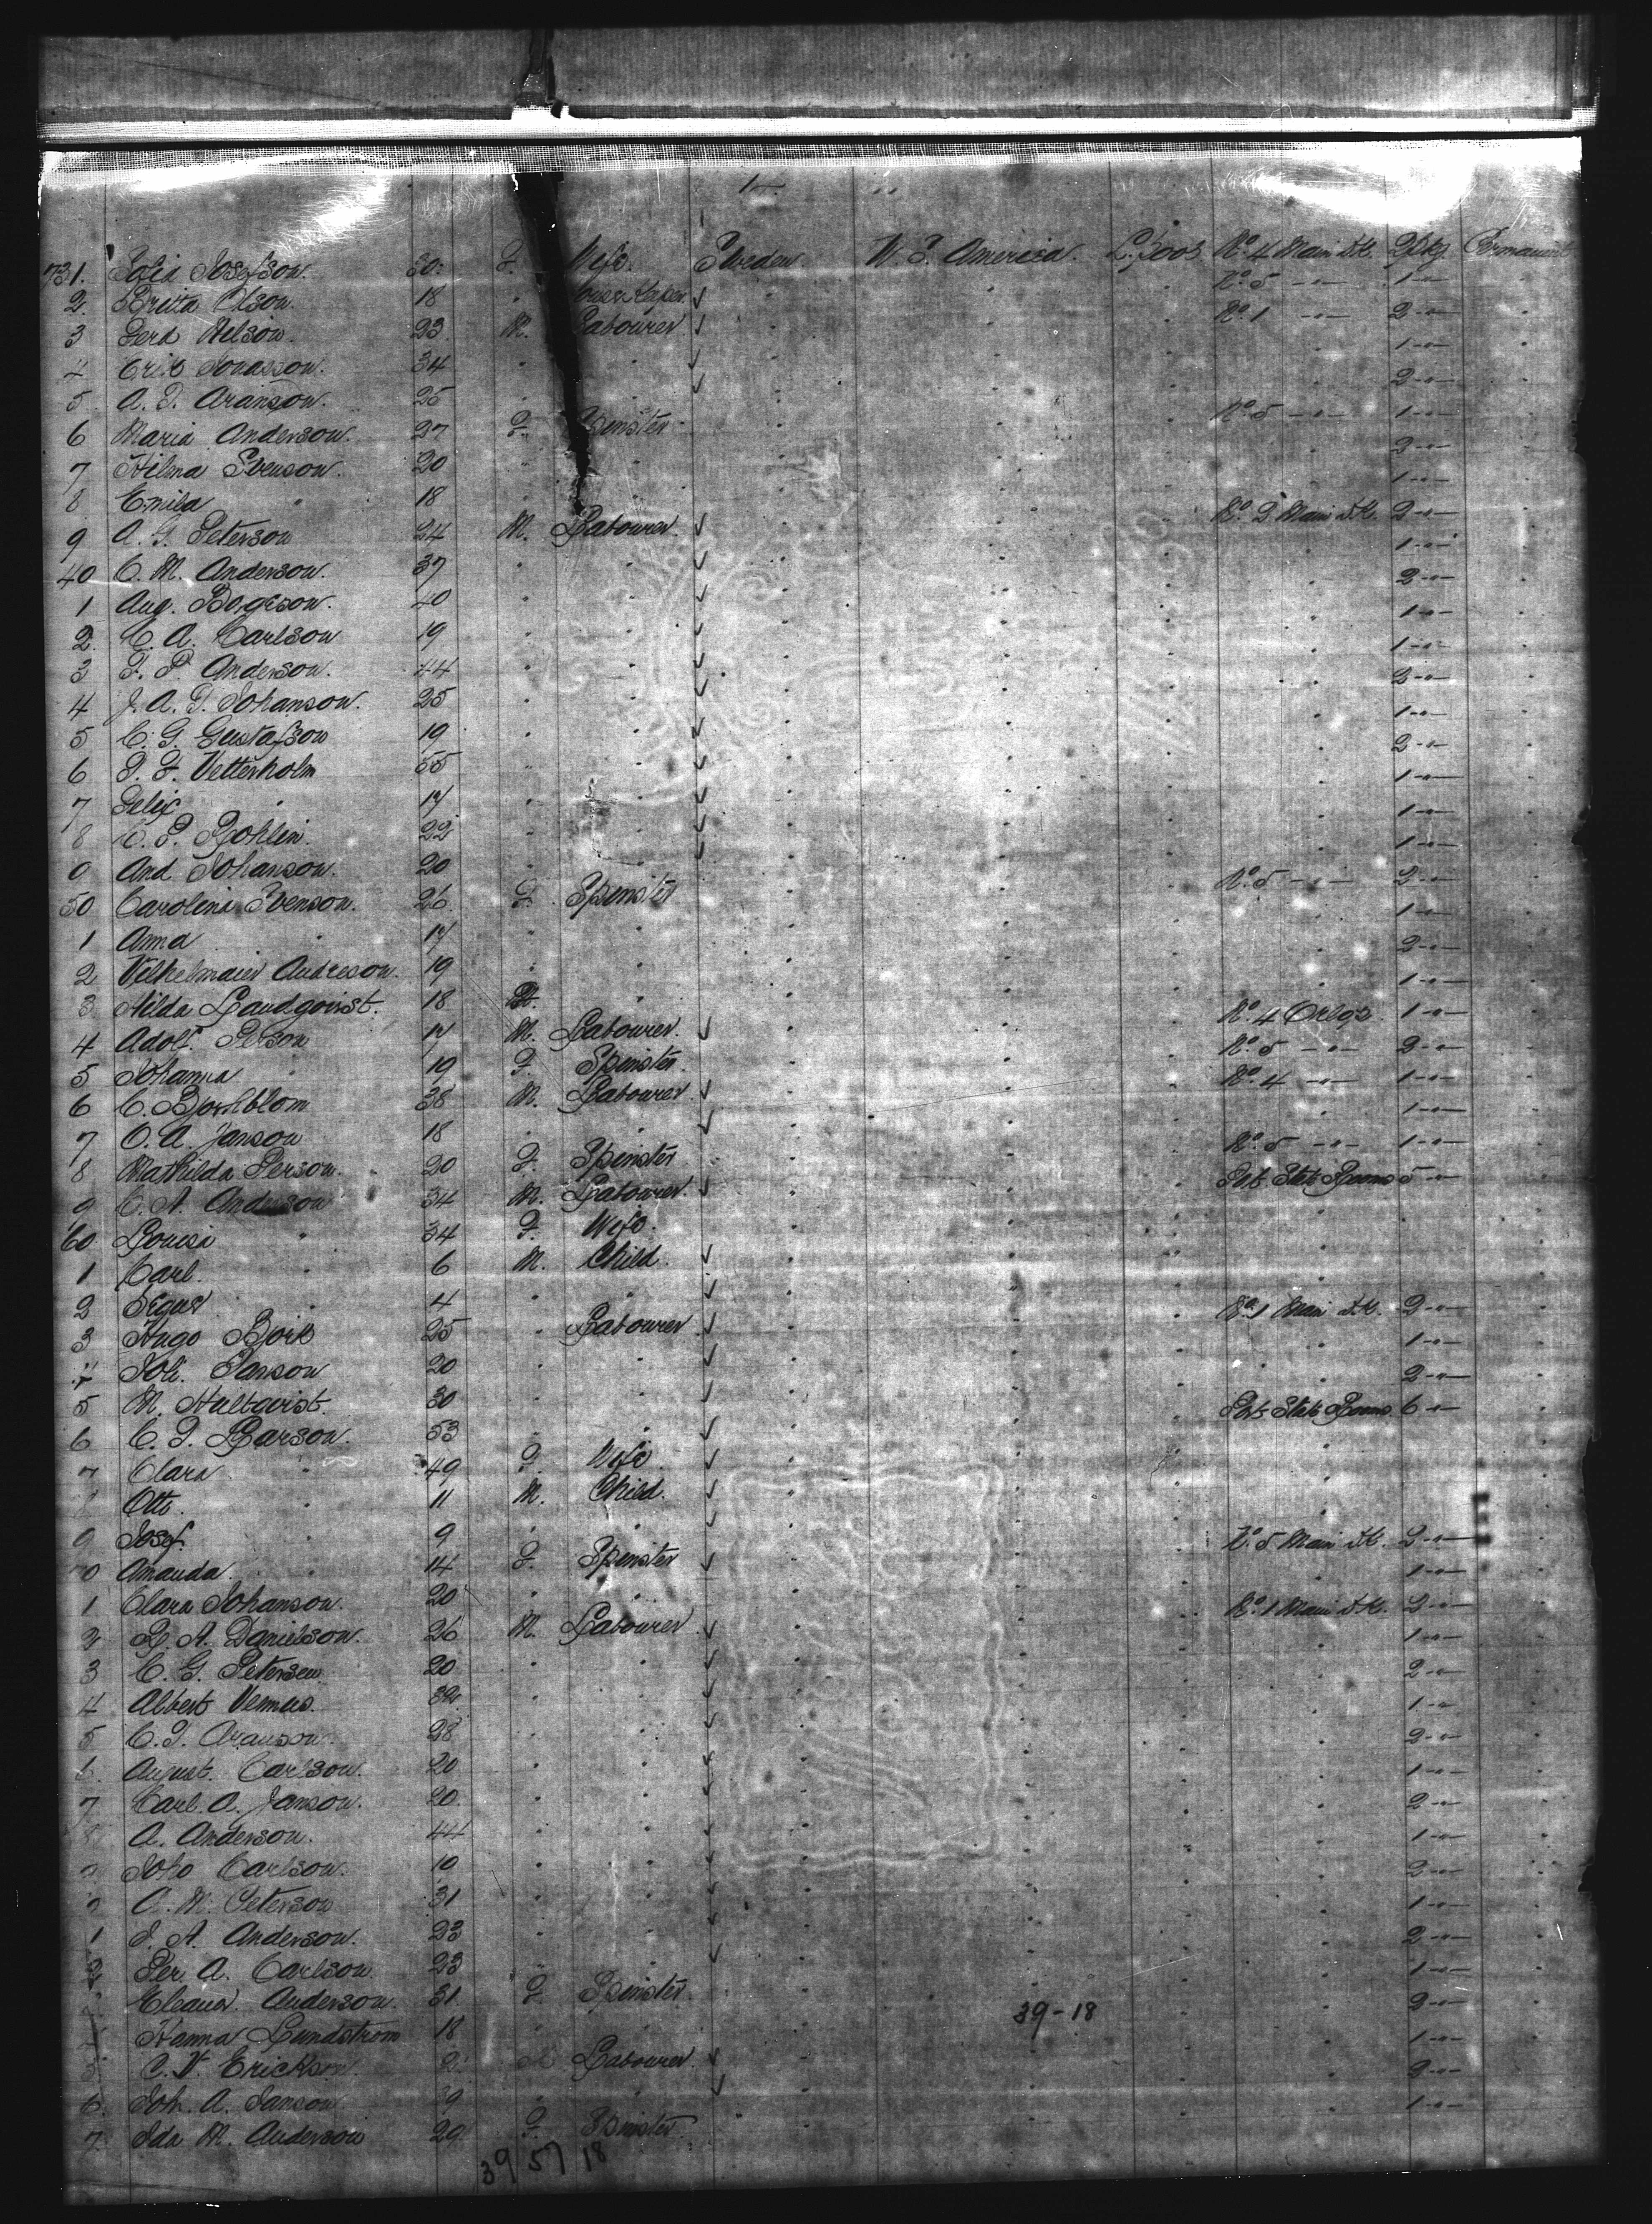 731. Sofia Josefson. 30. F. Wife. Sweden U. S. America. L.pool No. 4 Main Dk. 2 Pkg. Permanent
2. Britta Olson. 18 " " " " No. 5 -"- 1 -"-
3 Perd Nelson. 23 M. Labourer " " " No. 1 -"- 2 -"-
4 Erik Jonasson. 34 " " " 1 -"-
5. A. S. Aranson. 25 " " " 2 -"-
6 Maria Anderson. 27 F. Spinster No. 5 -"- 1 -"-
7 Hilma Svenson. 20 " "
8 Emila " 18 " " 1 -"-
9 A. G. Peterson 24 M. Labourer. No. 2 Main Dk. 2 -"-
40 C. M. Anderson. 37 " " 1 -"-
1 Aug. Borgeson. 40 " " 2 -"-
2. C. A. Carlson 19 " " 1 -"-
3 F. P. Anderson. 44 " " 1 -"-
4 J. A. T. Johanson. 25 " " 2 -"-
5 C. G. Gustafson 19 " " 1 -"-
6 P. F. Vetterholm 55 " " 2 -"-
7 Felix " 17 " " 1 -"-
8 C. P. Bohlin. 22 " " 1 -"-
9 And Johanson. 20 " " 1 -"-
50 Carolina Svenson. 26 F. Spinster No. 5 -"- 2 -"-
1 Anna " 17 " " 1 -"-
2 Andreson. 19 " " 2 -"-
3 Hilda Landqvist. 18 " 1 -"-
4 Adolf Person 17 M. Labourer. No. 4 Orlop. 1 -"-
5 Johanna " 19 F. Spinster. No. 5 -"- 2 -"-
6 C. Bjorkblom 38 M. Labourer No. 4 -"- 1 -"-
7 O. A. Janson 18 " " 1 -"-
8 Mathilda Person. 20 F. Spinster No. 5 -"- 1 -"-
9 C. A. Anderson 34 M. Labourer. State Rooms 5 -"-
60 Lovisa " 34 F. Wife.
1 Carl. " 6 M. Child.
2 " 4 " "
3 Hugo Bjork 25 " Labourer No. 1 Main Dk. 2 -"-
4 Joh. Janson 20 " " 1 -"-
5 M. Hultqvist. 30 " " 2 -"-
6 C. J. Larson. 53 " " State Rooms. 6 -"-
7 Clara " 49 F. Wife
Otto " 11 M. Child.
9 Josef. " 9 " "
70 Amanda. " 14 F. Spinster No. 5 Main Dk. 2 -"-
1 Clara Johanson. 20 " " 1 -"-
2 L. A. Danielson. 26 M. Labourer No. 1 Main Dk. 2 -"-
3 C. G. Petersen 20 " " 1 -"-
4 Albert 32 " " 2 -"-
5 C. J. Aranson. 28 " " 1 -"-
6. August. Carlson. 20 " " 2 -"-
7 Carl. A. Janson. 20 " " 1 -"-
8 A. Anderson. 44 " " 2 -"-
9 Joho Carlson. 19 " " 1 -"-
A. M. Peterson 31 " " 2 -"-
1 J. A. Anderson. 23 " " 1 -"-
2 Per. A. Carlson 23 " " 2 -"-
Anderson. 31 F. Spinster. 1 -"-
Hanna Lundstrom 18 " " 39-18 2 -"-
5 C. V. Erickson. Labourer. 1 -"-
6. Joh. A. Janson 39 " " 2 -"-
7. Ida M. Anderson 29 F. Spinster. 1 -"-
39 57 18